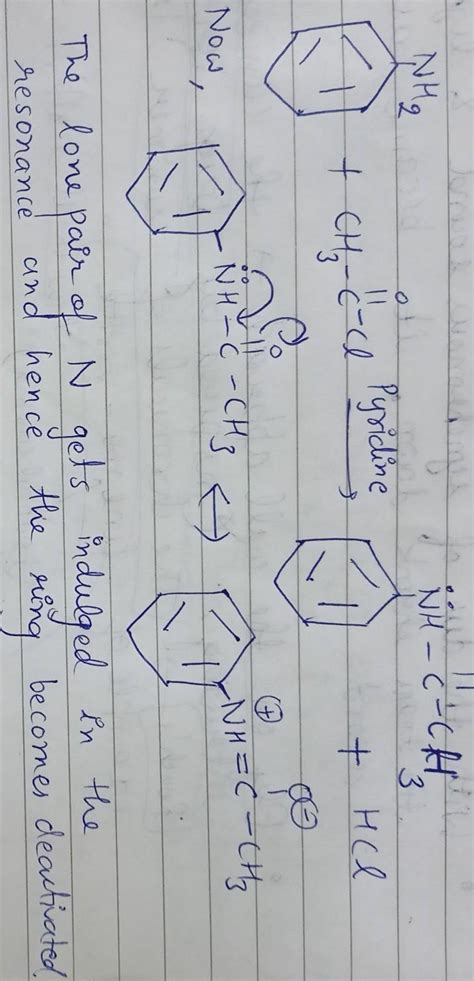 NH2
+ CH3-C-Cl Pyridine → NH-C-CH3 + HCl
O
Now, NH-C-CH3 ↔ NH=C-CH3
O ⊕ O⊖
The lone pair of N gets indulged in the
resonance and hence the ring becomes deactivated.